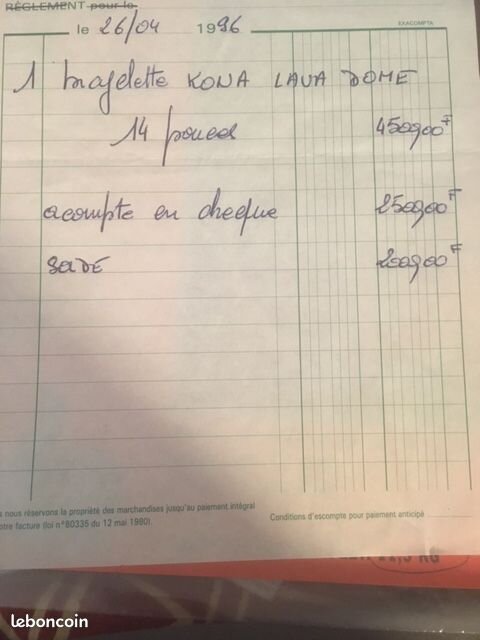 RÈGLEMENT pour le
le 26/04 1996
EXACOMPTA
1 bicyclette KONA LAVA DOME
14 pouces 4500,00 F
acompte en chèque 2500,00 F
SOLDE 2000,00 F
nous réservons la propriété des marchandises jusqu'au paiement intégral
otre facture (loi n° 80335 du 12 mai 1980).
Conditions d'escompte pour paiement anticipé
KG
leboncoin